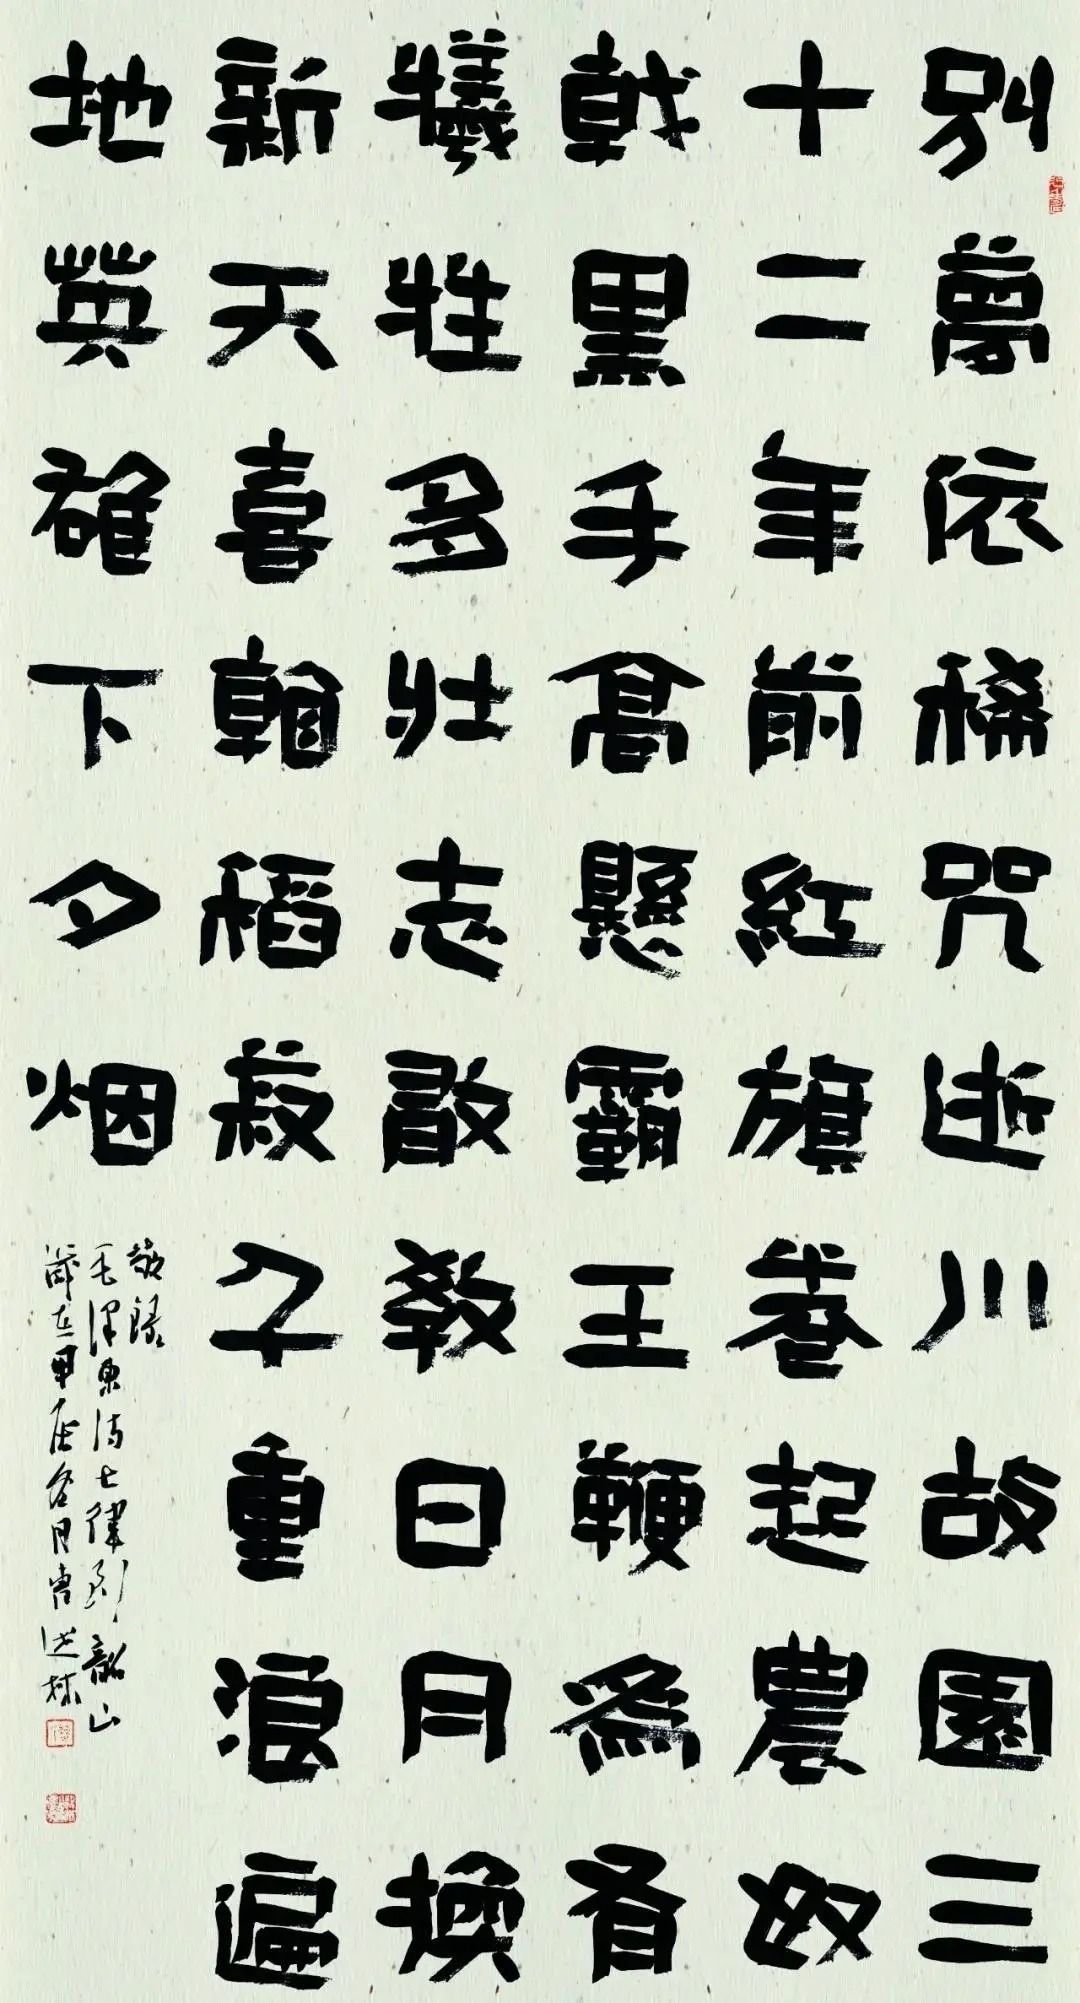 别夢依稀咒逝川故園三
十二年前紅旗卷起農奴
戟黑手高懸霸王鞭為有
犧牲多壯志敢教日月換
新天喜看稻菽千重浪遍
地英雄下夕烟
敬録
毛澤東詩七律到韶山
歲在甲辰月